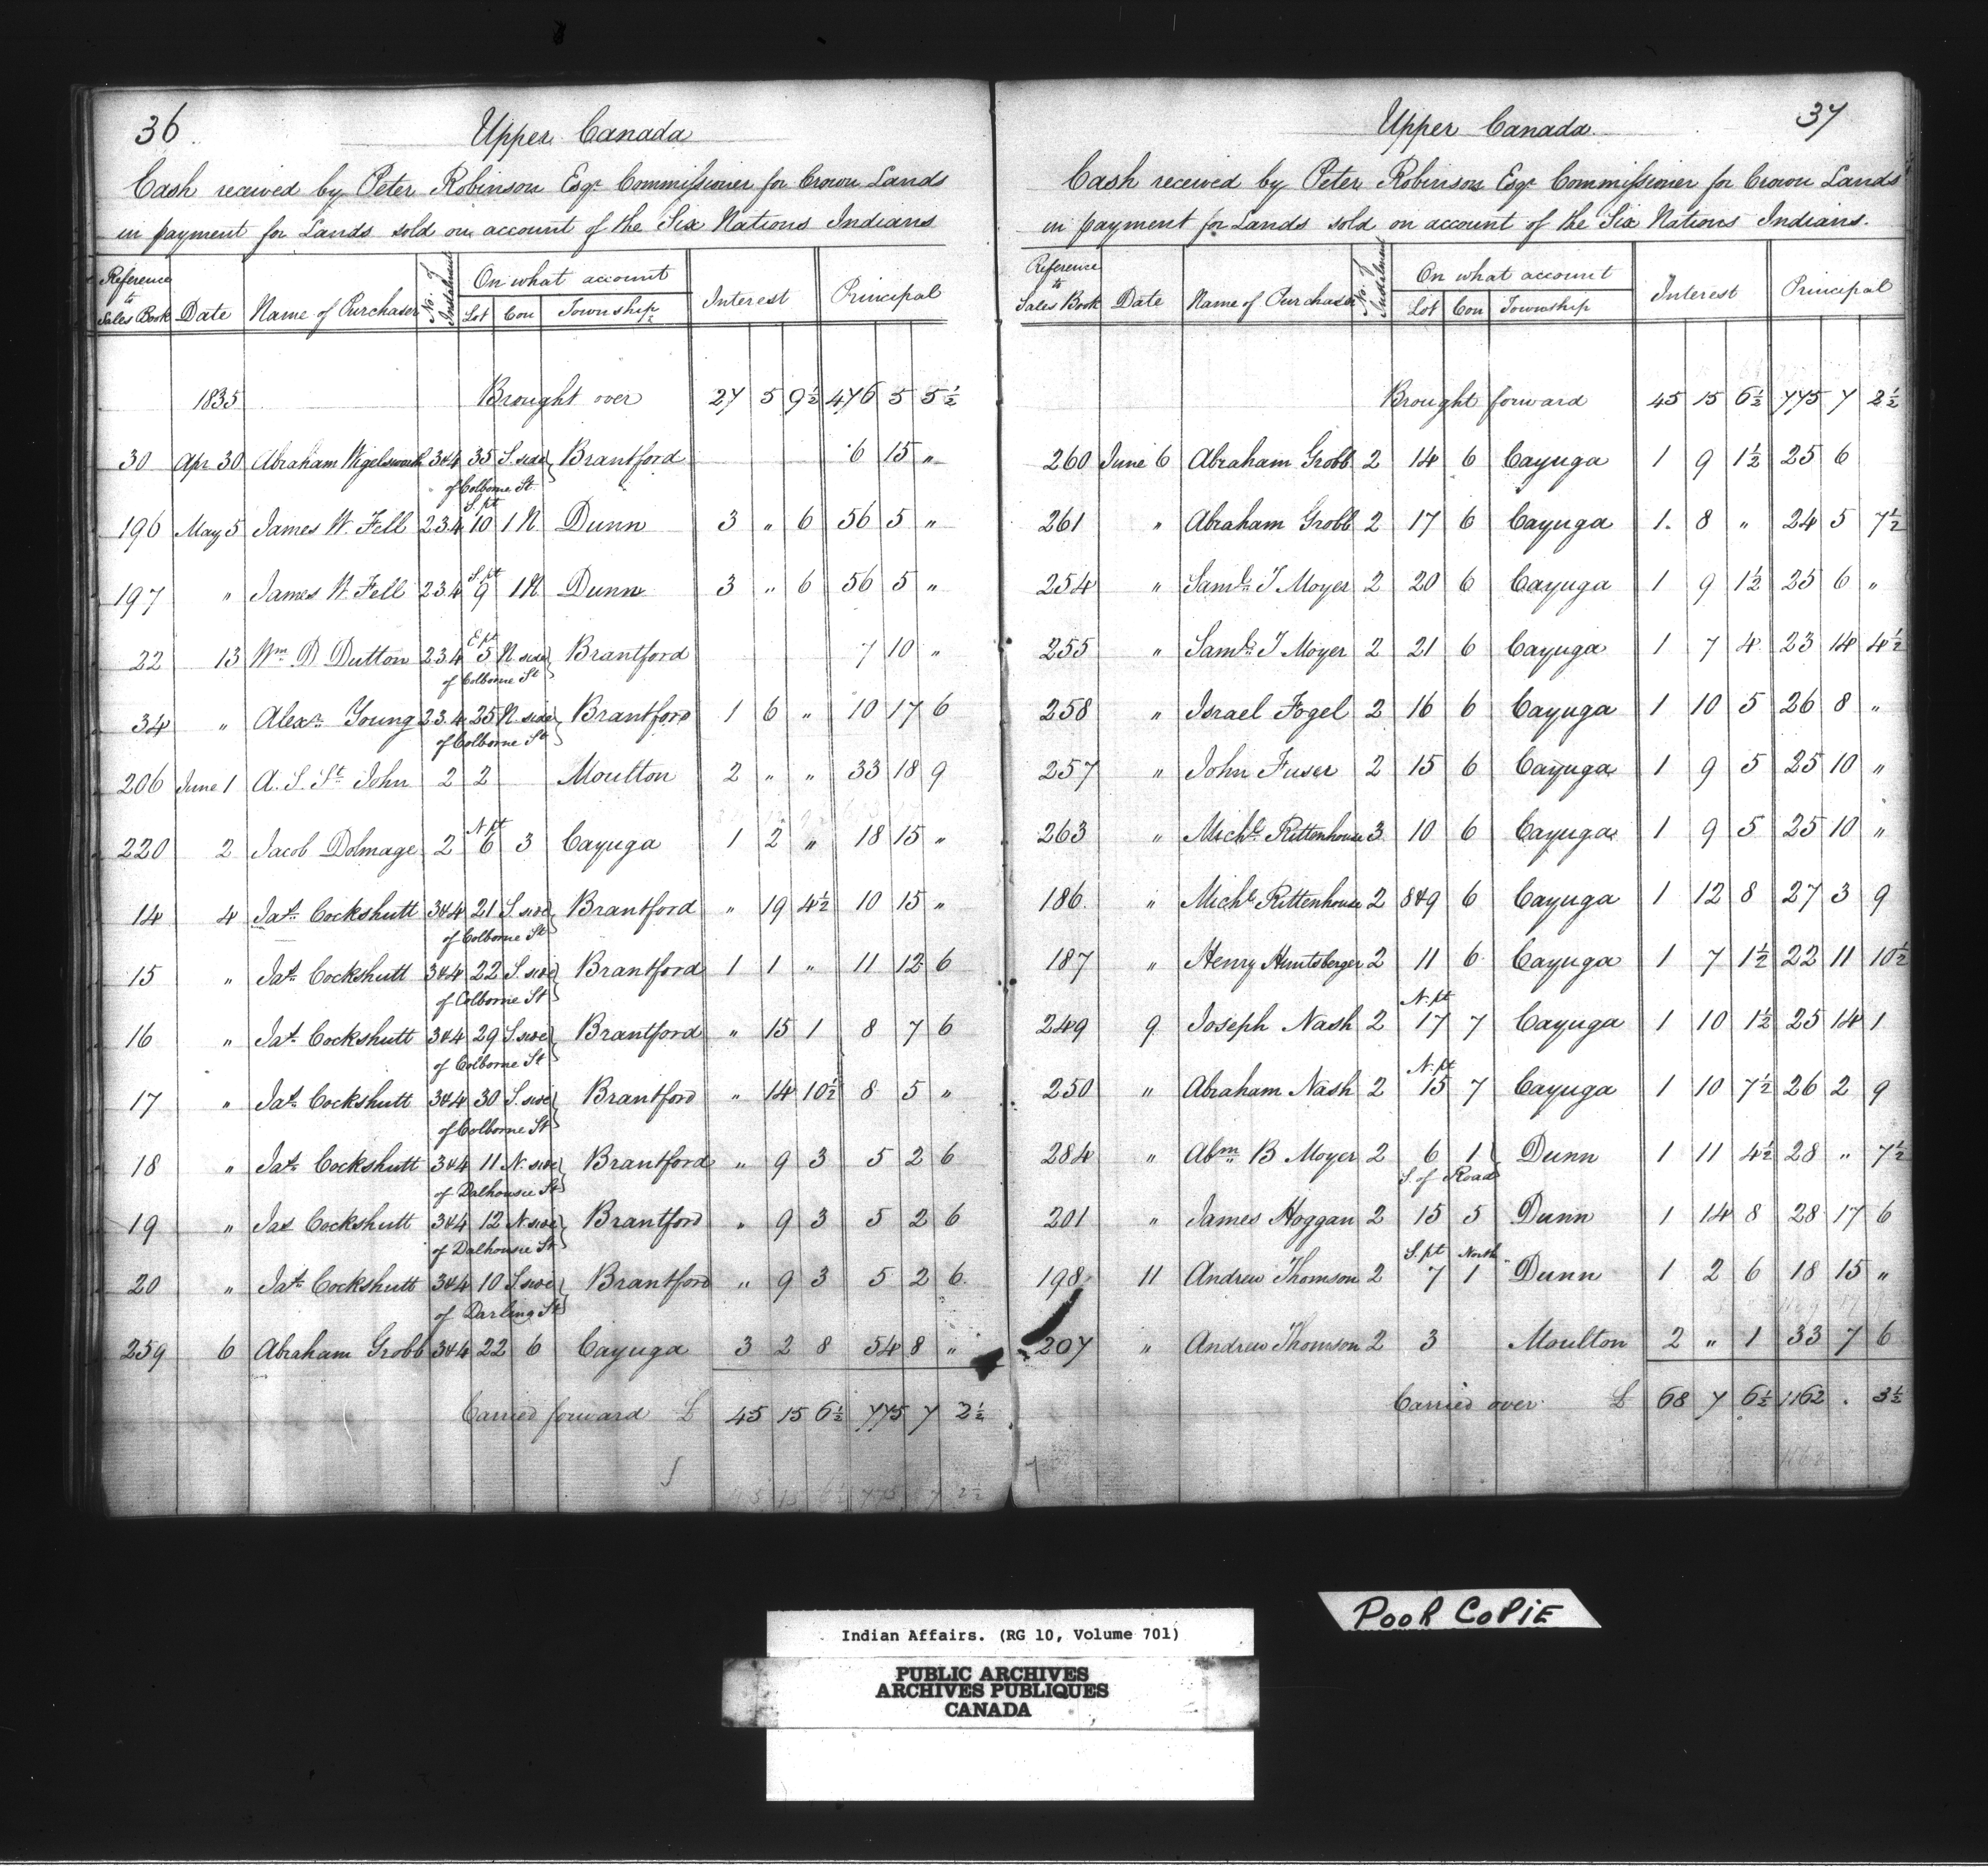 36
Upper Canada
Cash received by Peter Robinson Esqr Commissioner for Crown Lands
in payment for Lands sold on account of the Six Nations Indians
Reference to Sales Book Date Name of Purchaser No. of Instalment On what account Interest Principal
Lot Con Township
1835 Brought over 27 5 9½ 476 5 5½
30 Apr 30 Abraham Wigelsworth 3&4 35 S. side Brantford 6 15 "
of Colborne St
196 May 5 James W. Fell 2.3.4 S. pt 10 1 N Dunn 3 " 6 56 5 "
197 " James W. Fell 2.3.4 S. pt 9 1 N Dunn 3 " 6 56 5 "
22 13 Wm D Dutton 2.3.4 E pt 5 N side Brantford 7 10 "
of Colborne St
34 " Alexr Young 2.3.4 25 N side Brantford 1 6 " 10 17 6
of Colborne St
206 June 1 A. S. St John 2 2 Moulton 2 " " 33 18 9
220 2 Jacob Dolmage 2 N pt 6 3 Cayuga 1 2 " 18 15 "
14 4 Jas Cockshutt 3&4 21 S. side Brantford " 19 4½ 10 15 "
of Colborne St
15 " Jas Cockshutt 3&4 22 S. side Brantford 1 1 " 11 12 6
of Colborne St
16 " Jas Cockshutt 3&4 29 S. side Brantford " 15 1 8 7 6
of Colborne St
17 " Jas Cockshutt 3&4 30 S. side Brantford " 14 10½ 8 5 "
of Colborne St
18 " Jas Cockshutt 3&4 11 N. side Brantford " 9 3 5 2 6
of Dalhousie St
19 " Jas Cockshutt 3&4 12 N side Brantford " 9 3 5 2 6
of Dalhousie St
20 " Jas Cockshutt 3&4 10 S side Brantford " 9 3 5 2 6
of Darling St
259 6 Abraham Grobb 3&4 22 6 Cayuga 3 2 8 54 8 "
Carried forward £ 45 15 6½ 775 7 2½
45 15 6½ 775 7 2½
37
Upper Canada
Cash received by Peter Robinson Esqr Commissioner for Crown Lands
in payment for Lands sold on account of the Six Nations Indians.
Reference to Sales Book Date Name of Purchaser No. of Instalment On what account Interest Principal
Lot Con Township
Brought forward 45 15 6½ 775 7 2½
260 June 6 Abraham Grobb 2 14 6 Cayuga 1 9 1½ 25 6
261 " Abraham Grobb 2 17 6 Cayuga 1 8 " 24 5 7½
254 " Saml T Moyer 2 20 6 Cayuga 1 9 1½ 25 6 "
255 " Saml T Moyer 2 21 6 Cayuga 1 7 4 23 14 4½
258 " Israel Fogel 2 16 6 Cayuga 1 10 5 26 8 "
257 " John Fuser 2 15 6 Cayuga 1 9 5 25 10 "
263 " Michl Rittenhouse 3 10 6 Cayuga 1 9 5 25 10 "
186 " Michl Rittenhouse 2 8&9 6 Cayuga 1 12 8 27 3 9
187 " Henry Huntsberger 2 11 6 Cayuga 1 7 1½ 22 11 10½
249 9 Joseph Nash 2 N. pt 17 7 Cayuga 1 10 1½ 25 14 1
250 " Abraham Nash 2 N. pt 15 7 Cayuga 1 10 7½ 26 2 9
284 " Abm B Moyer 2 6 1 Dunn 1 11 4½ 28 " 7½
S. of Road
201 " James Hoggan 2 15 5 Dunn 1 14 8 28 17 6
198 11 Andrew Thomson 2 S. pt 7 North 1 Dunn 1 2 6 18 15 "
207 " Andrew Thomson 2 3 Moulton 2 " 1 33 7 6
Carried over £ 68 7 6½ 1162 . 3½
Indian Affairs. (RG 10, Volume 701)
PUBLIC ARCHIVES
ARCHIVES PUBLIQUES
CANADA
POOR COPIE